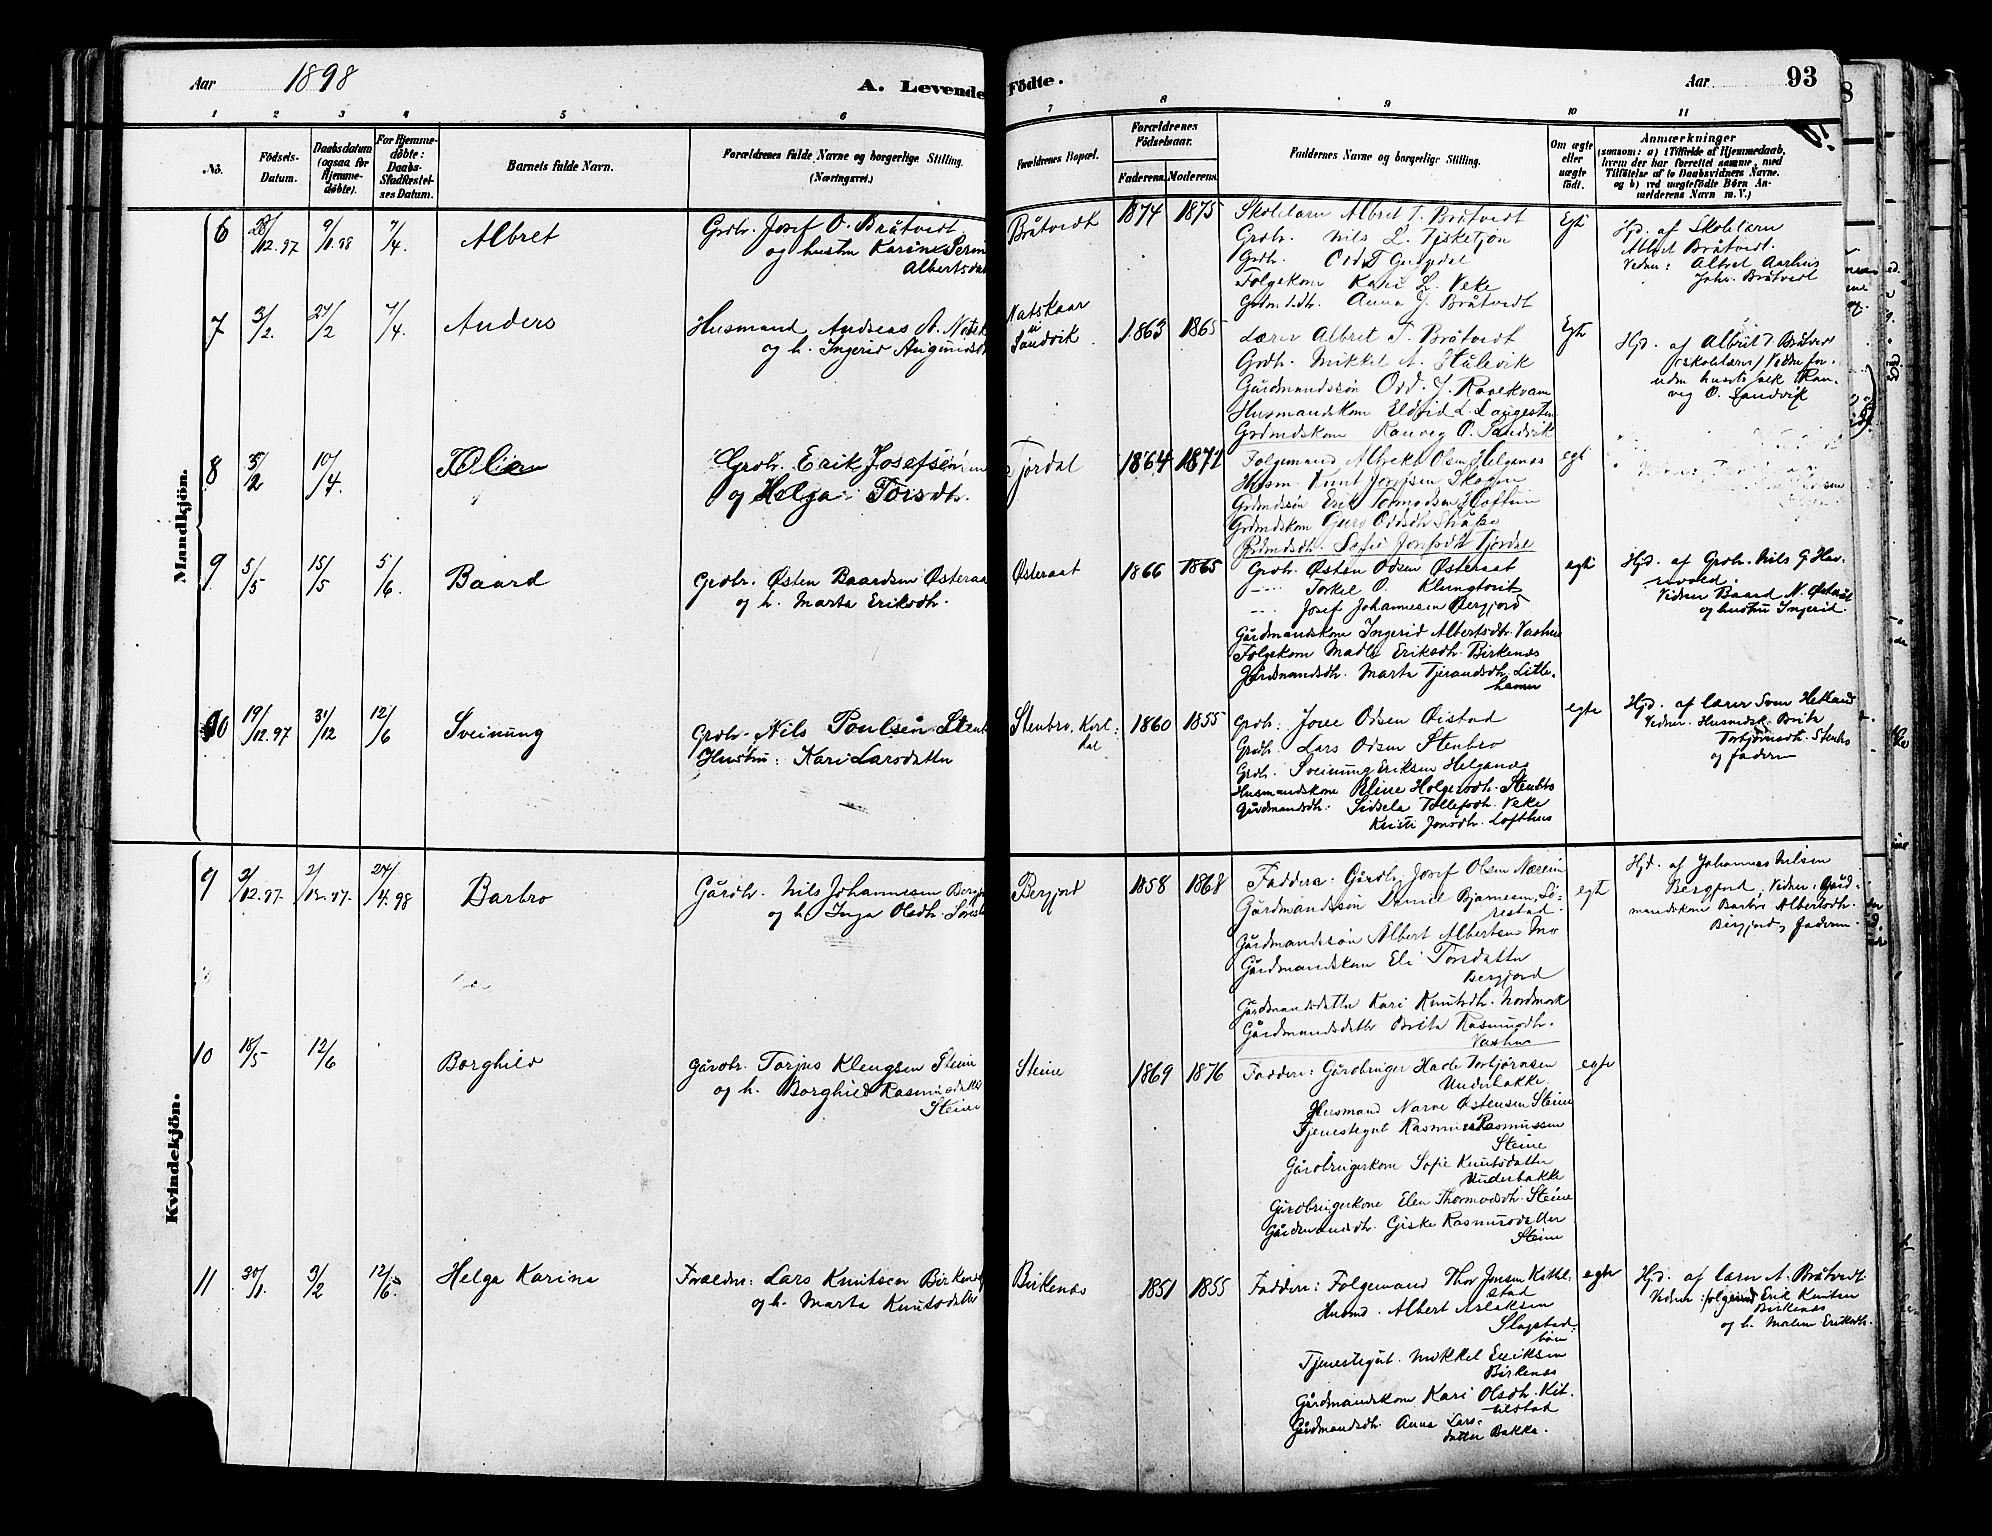 Aar 1898
A. Levende Födte.
Aar 93
1 2 3 4 5 6 7 8 9 10 11
No.
Fødsels-Datum.
Daabsdatum (ogsaa for Hjemmedøbte).
For Hjemmedøbte: Daabs-Stadfæstelses Datum.
Barnets fulde Navn.
Forældrenes fulde Navne og borgerlige Stilling. (Næringsvei.)
Forældrenes Bopæl.
Forældrenes Födselsaar.
Faderens. Moderens.
Faddernes Navne og borgerlige Stilling.
Om ægte eller uægte født.
Anmærkninger
(saasom: a) i Tilfælde af Hjemmedaab,
hvem der har forrettet samme, med
Tilføielse af to Daabsvidners Navne,
og b) ved uægtefödte Börn An-
melderens Navn m. V.)
Mandkjön.
6 28/12.97 9/1.98 7/4. Albret
Grdbr. Josef O. Bråtvedt
og hustru Karine
Albertsdat
Bråtvedt 1874 1875
Skolelærer Albret T. Bråtvedt
Grdbr. Nils L. Fisketjøn
Grdbr. Odd T
Følgekone Kari L. Veke
Anna J. Bråtvedt
Egte
Hjd. af Skolelærer
Albret Bråtvedt.
Vidner: Albret Aarhus
Johs. Bråtvedt
7 3/2. 24/2 7/4. Anders
Husmand Andreas A.
og h. Ingerid
Natskaar
Sandvik 1863 1865
Lærer Albret T. Bråtvedt
Grdbr. Mikkel A. Hålevik
Gårdmandssøn Odd J.
Husmandskone
Grdmdskone Ranveg O. Sandvik
Egte
Hjd. af Albret T. Bråtvedt
(skolelærer) Vidner for-
uden husets folk Ran-
veg O. Sandvik
8 5/2 10/4. Olai
Grdbr. Erik Josefsen
og Helga Torsdtr.
Tjørdal 1864 1871
Følgemand Olsen Helganes
Husm. Knut Josefsen Skogen
Grdmdssøn Erik Tormodsen
Grdmdskone Guro Oddsdtr
Grdmdsdtr. Sofie Josefsdtr Tjørdal
egte
9 5/5 15/5 5/6. Baard
Grdbr. Østen Baardsen Østeraa
og h. Marta Eriksdtr.
Østeraat 1866 1865
Grdbr. Østen Odsen Østeraat
Torkel O. Klungtveit
Josef Johannesen Bergjord
Gårdmandskone Ingerid Albertsdtr. Vashus
Følgekone Madli Eriksdtr. Birkenæs
Gårdmandsdtr. Marta Tjerandsdtr. Litle-
hamar
egte
Hjd. af Grdbr. Nils G.
Vidner Baard N. Østeraat
og hustru Ingerid.
10 19/12.97 31/12 12/6 Sveinung
Grdbr. Nils Poulsen Stenb
Hustru: Kari Larsdatter
Stenbro, 1860 1855
Grdbr. Odsen Øistad
Grdbr. Lars Odsen Stenbro
Grdbr. Sveinung Eriksen Helganæs
Husmandskone Eline Holgersdtr. Stenbro
Gårdmandsdtr. Sidsela Tollefsdtr. Veke
Kristi Jonsdtr. Lofthus
egte
Hjd. af lærer Sven Hetland
Vidner. Husmdsk. Brita
Torbjørnsdtr. Stenbro
og faderen
Kvindekjön.
9 2/12.97 2/12.97. 24/4.98 Barbro
Gårdbr. Nils Johannesen Bergj
og h. Inga Olsdtr.
Bergjord 1858 1868
Faddere: Gårdbr. Josef Olsen Næreim
Gårdmandssøn Daniel Bjarnesen, Sø-
restad.
Gårdmandssøn Albert Albertsen Mo
Gårdmandskone Eli Torsdatter
Bergjord
Gårdmandsdatter Kari Knutsdtr. Nordmork
Gårdmandsdatter Brita Rasmusdtr.
Vashus
egte
Hjd. af Johannes Nilsen
Bergjord, Vidner: Gård-
mandskone Barbro Albertsdtr.
Bergjord, faderen
10 18/5- 12/6 Borghild
Gårdbr. Torjus Klengsen Steine
og h. Borghild Rasmusdatter
Steine
Steine 1869 1876
Faddere: Gårdbruger Torbjørnsen
Underbakke
Husmand Narve Østensen Steine
Tjenestegut Rasmus Rasmussen
Steine
Gårdbrugerkone Sofie Knutsdatter
Underbakke
Gårdbrugerkone Elen Thormodsdtr. Steine
Gårdmandsdtr. Giske Rasmusdatter
Steine
egte
11 30/1. 3/2 12/6. Helga Karina
Forældre: Lars Knutsen Birkenæs
og h. Marta Knutsdatter
Birkenæs 1851 1855
Faddere: Følgemand Thor Jonsen Kittel-
stad
Husmd. Albert Aslaksen
Slagstad-
bøen
Tjenestegut. Mikkel Eriksen
Birkenæs
Gårdmandskone Kari Olsdtr. Kit-
tilstad
Gårdmandsdtr. Anna Lars-
datter Bakka.
egte
Hjd. af lærer A. Bråtvedt
Vidner: følgemd Erik Knutsen
Birkenæs
og h. Malene Eriksdtr.